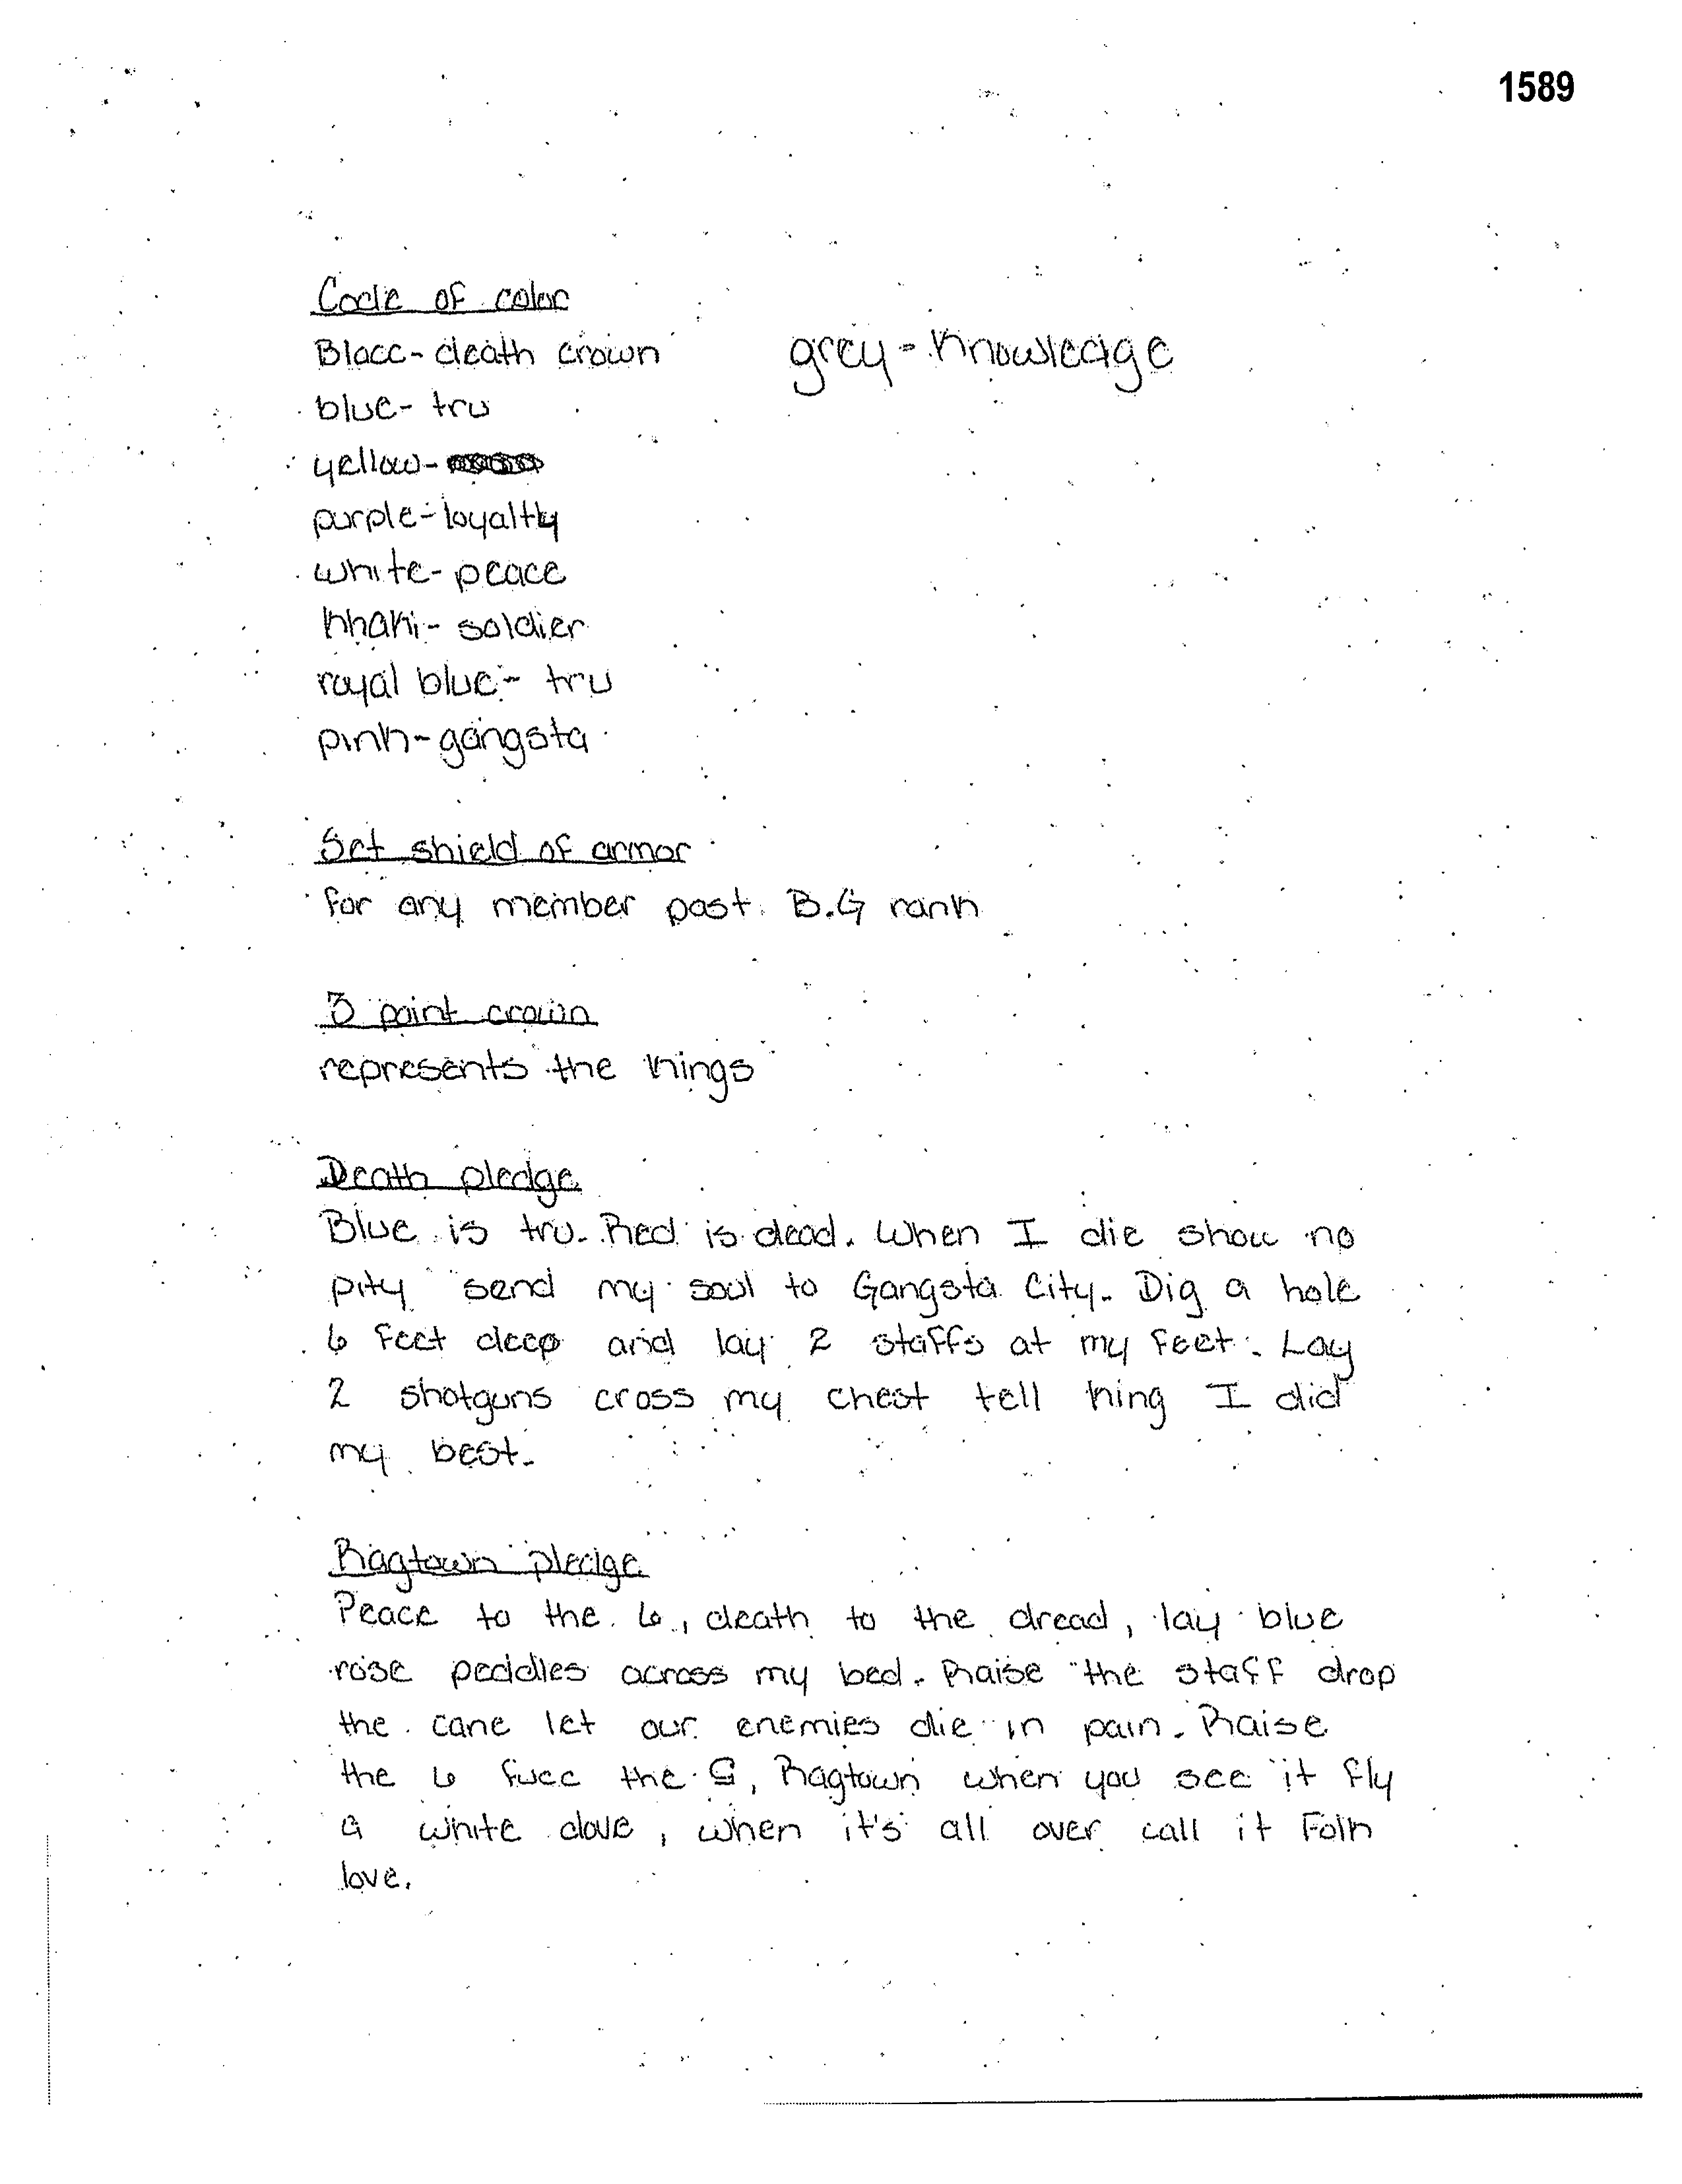 1589
Code of color
Blacc- death crown grey - Knowledge
blue- tru
yellow-
purple- loyaltly
white- peace
khaki- soldier
royal blue- tru
pink- gangsta
Set shield of armor
for any member past B.G rank
3 point crown
represents the kings
Death pledge
Blue is tru. Red is dead. When I die show no
pity send my soul to Gangsta City. Dig a hole
6 feet deep and lay 2 staffs at my feet. Lay
2 shotguns cross my chest tell king I did
my best.
Ragtown pledge
Peace to the 6, death to the dread, lay blue
rose peddles across my bed. Raise the staff drop
the cane let our enemies die in pain. Raise
the 6 fucc the 5, Ragtown when you see it fly
a white dove, when it's all over call it Folk
love.